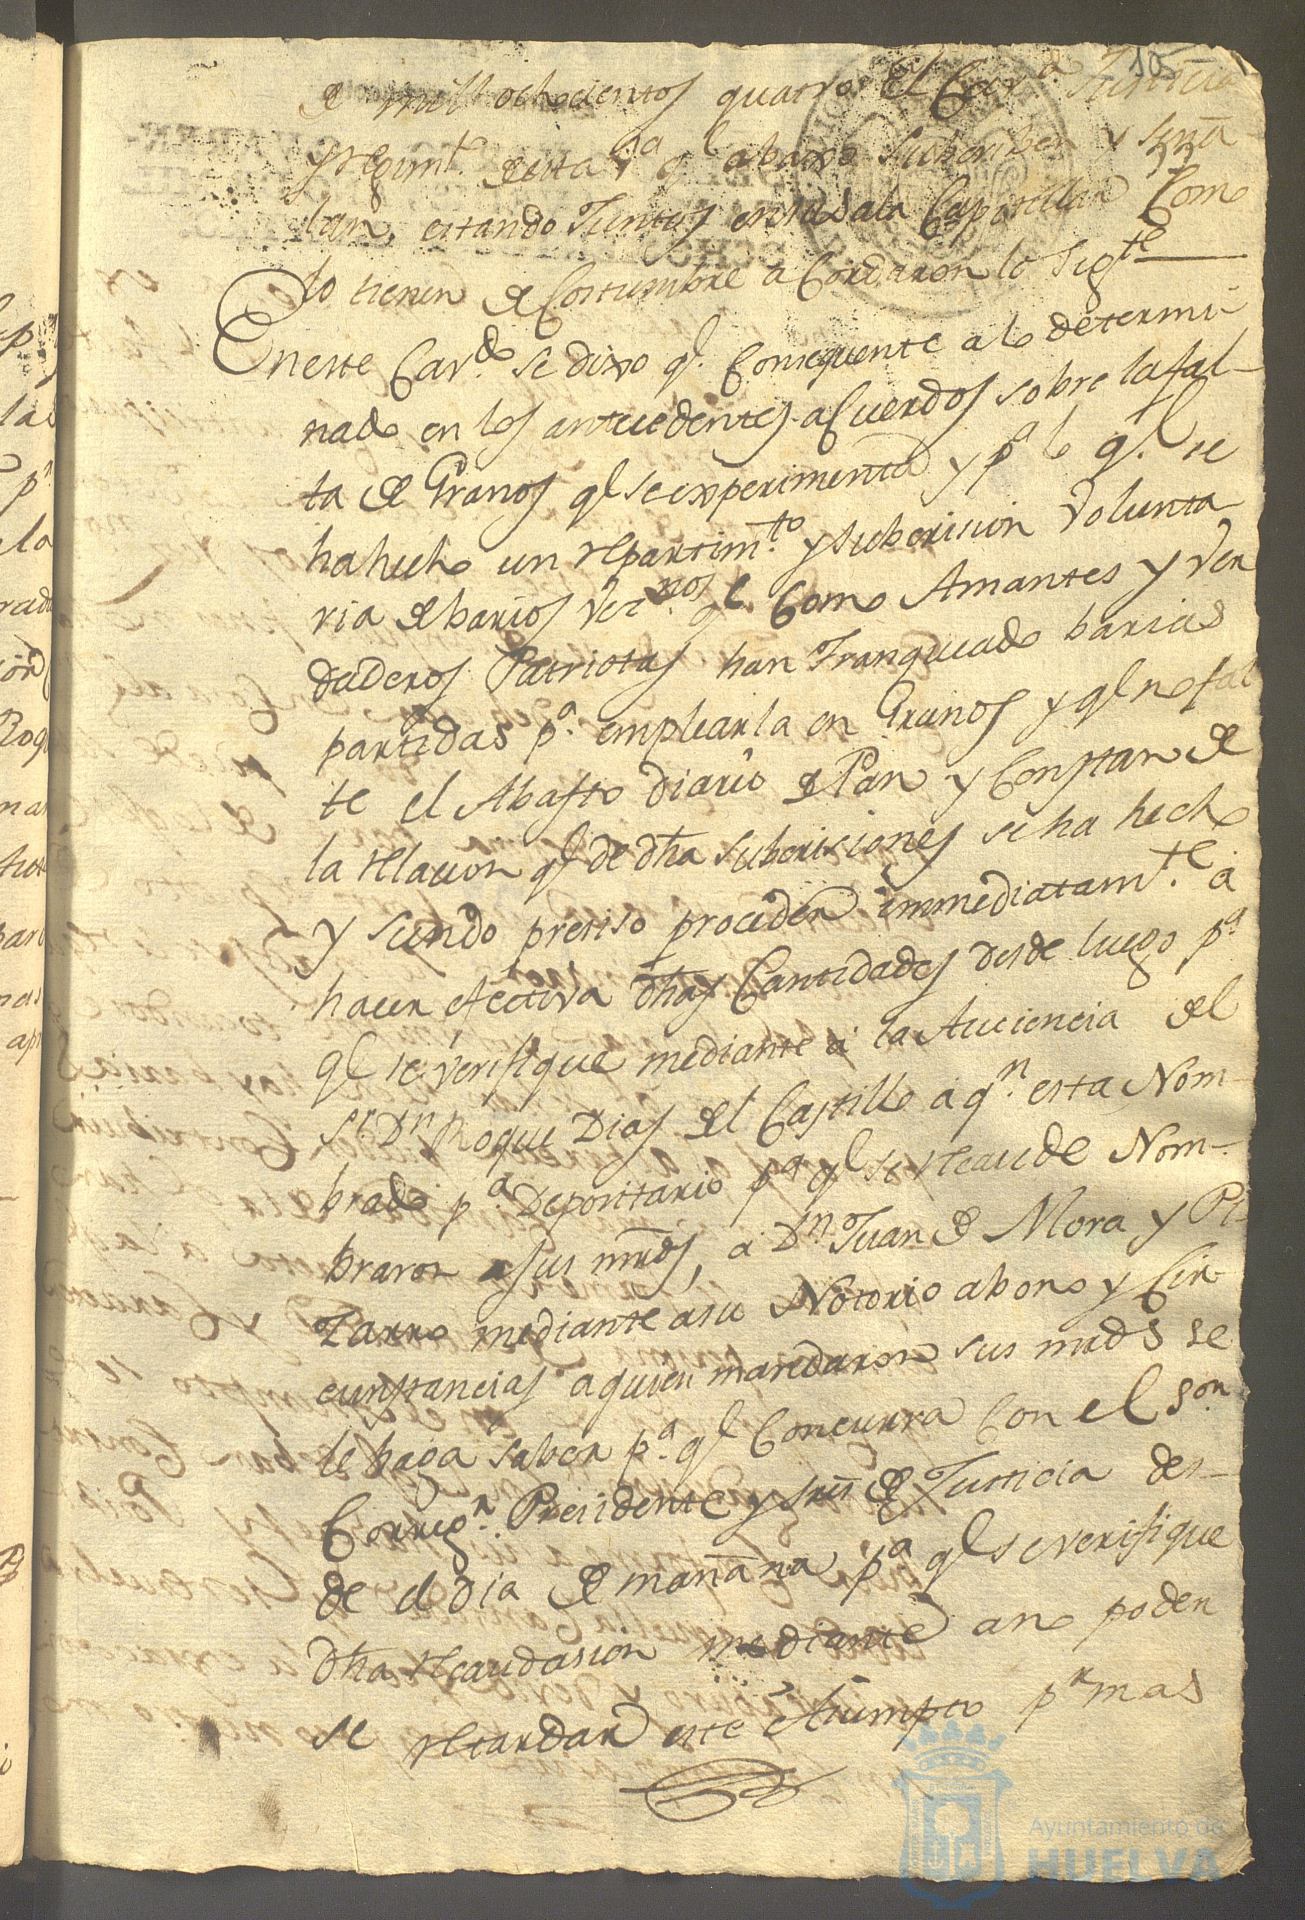 105
de mill ochocientos quatro El Cav.º Justicia
y regim.to de esta v.ª q.e abaxo subscriben y seña
lan, estando Juntos en su sala Capitular Como
lo tienen de Costumbre acordaron lo sig.te
En este Cav.do se dixo q.e Consequente a lo determi-
nado en los antecedentes acuerdos sobre la fal-
ta de Granos q.e se experimenta y p.ª lo q.e se
ha hecho un repartim.to y subscrision volunta-
ria de barios vez.nos q.e Como Amantes y Ver
daderos Patriotas han franqueado barias
partidas p.ª emplearla en Granos y q.e no fal
te el Abasto diario de Pan y Constan de
la relacion q.e de dha subscrisiones se ha hecho
y siendo presiso proceder immediatam.te a
hacer efectiva dhas Cantidades desde luego p.ª
q.e se verifique mediante a la Auciencia del
S.r D.n Roque Dias del Castillo a q.n esta Nom-
brado p.ª Depositario p.ª q.e se recaude Nom-
braron a sus mrds, a D.n Juan de Mora y Pi-
zarro mediante a su Notorio abono y Cir-
cunstancias a quien mandaron sus mrds se
le haga saber p.ª q.e Concurra Con el s.or
Correg.r Presidente y sres de Justicia des-
de el dia de mañana p.ª q.e se verifique
dha recaudasion mediante a no poder
se retardar este Asumpto p.r mas
Ayuntamiento de
HUELVA